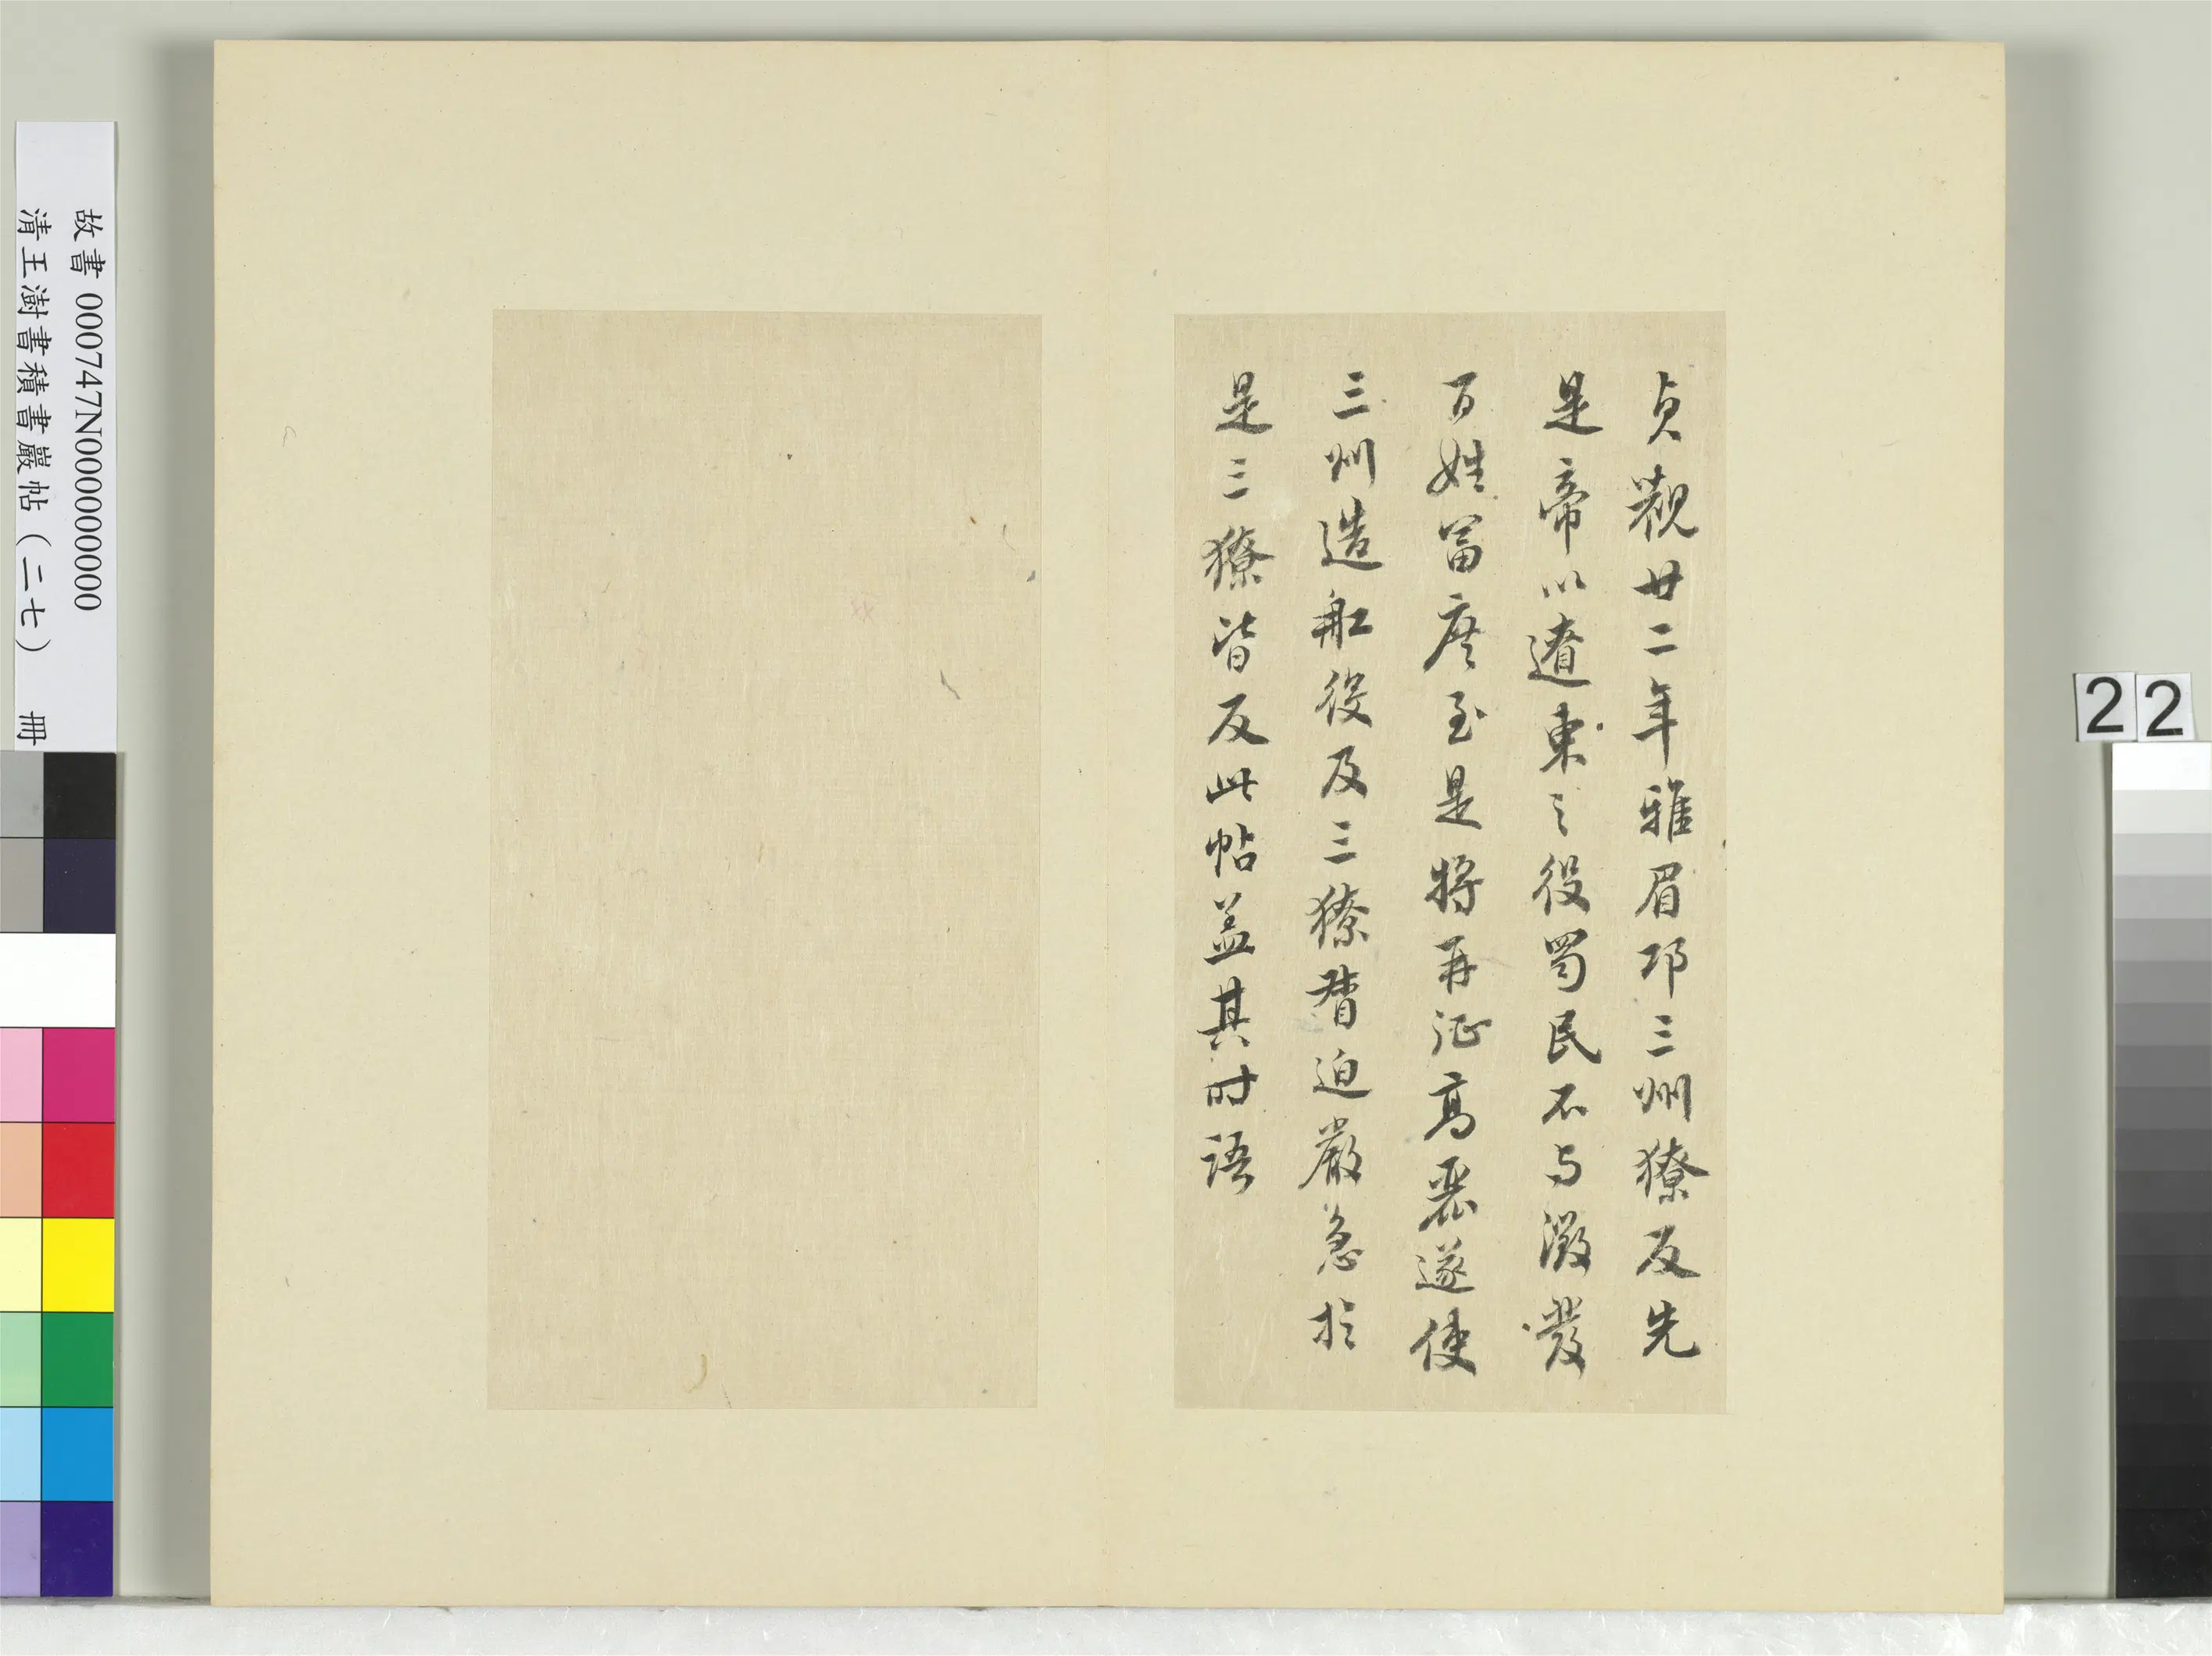 貞觀廿二年雅眉邛三州獠反先
是帝以遼東之役蜀民不与激發
百姓富庶至是將再征高麗遂使
三州造舡役及三獠督迫嚴急於
是三獠皆反此帖盖其时語
故書 000747N000000000
清王澍書積書巖帖（二七） 冊
22